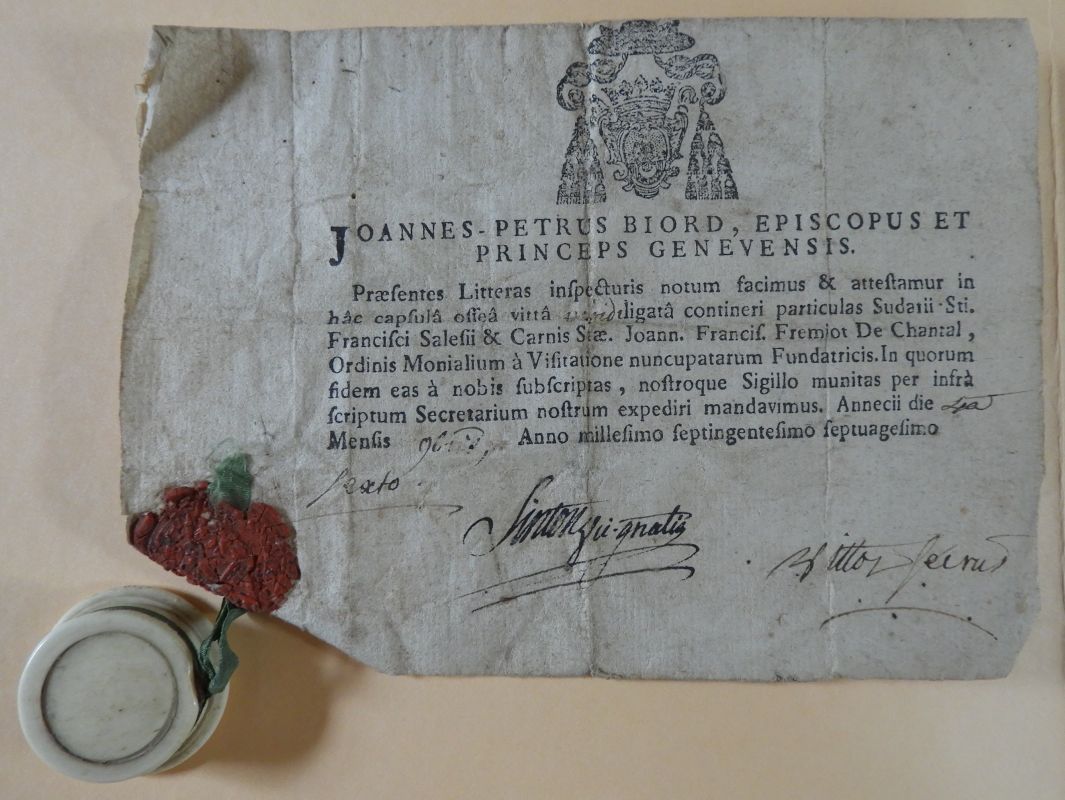 JOANNES-PETRUS BIORD, EPISCOPUS ET
PRINCEPS GENEVENSIS.
Præſentes Litteras inſpecturis notum facimus & atteſtamur in
hâc capſulâ oſſeâ vittâ viridi ligatâ contineri particulas Sudarii Sti.
Franciſci Saleſii & Carnis Stæ. Joann. Franciſ. Fremiot De Chantal,
Ordinis Monialium à Viſitatione nuncupatarum Fundatricis. In quorum
fidem eas à nobis ſubſcriptas, noſtroque Sigillo munitas per infrà
ſcriptum Secretarium noſtrum expediri mandavimus. Annecii die
Menſis 9bris, Anno milleſimo ſeptingenteſimo ſeptuageſimo
sexto.